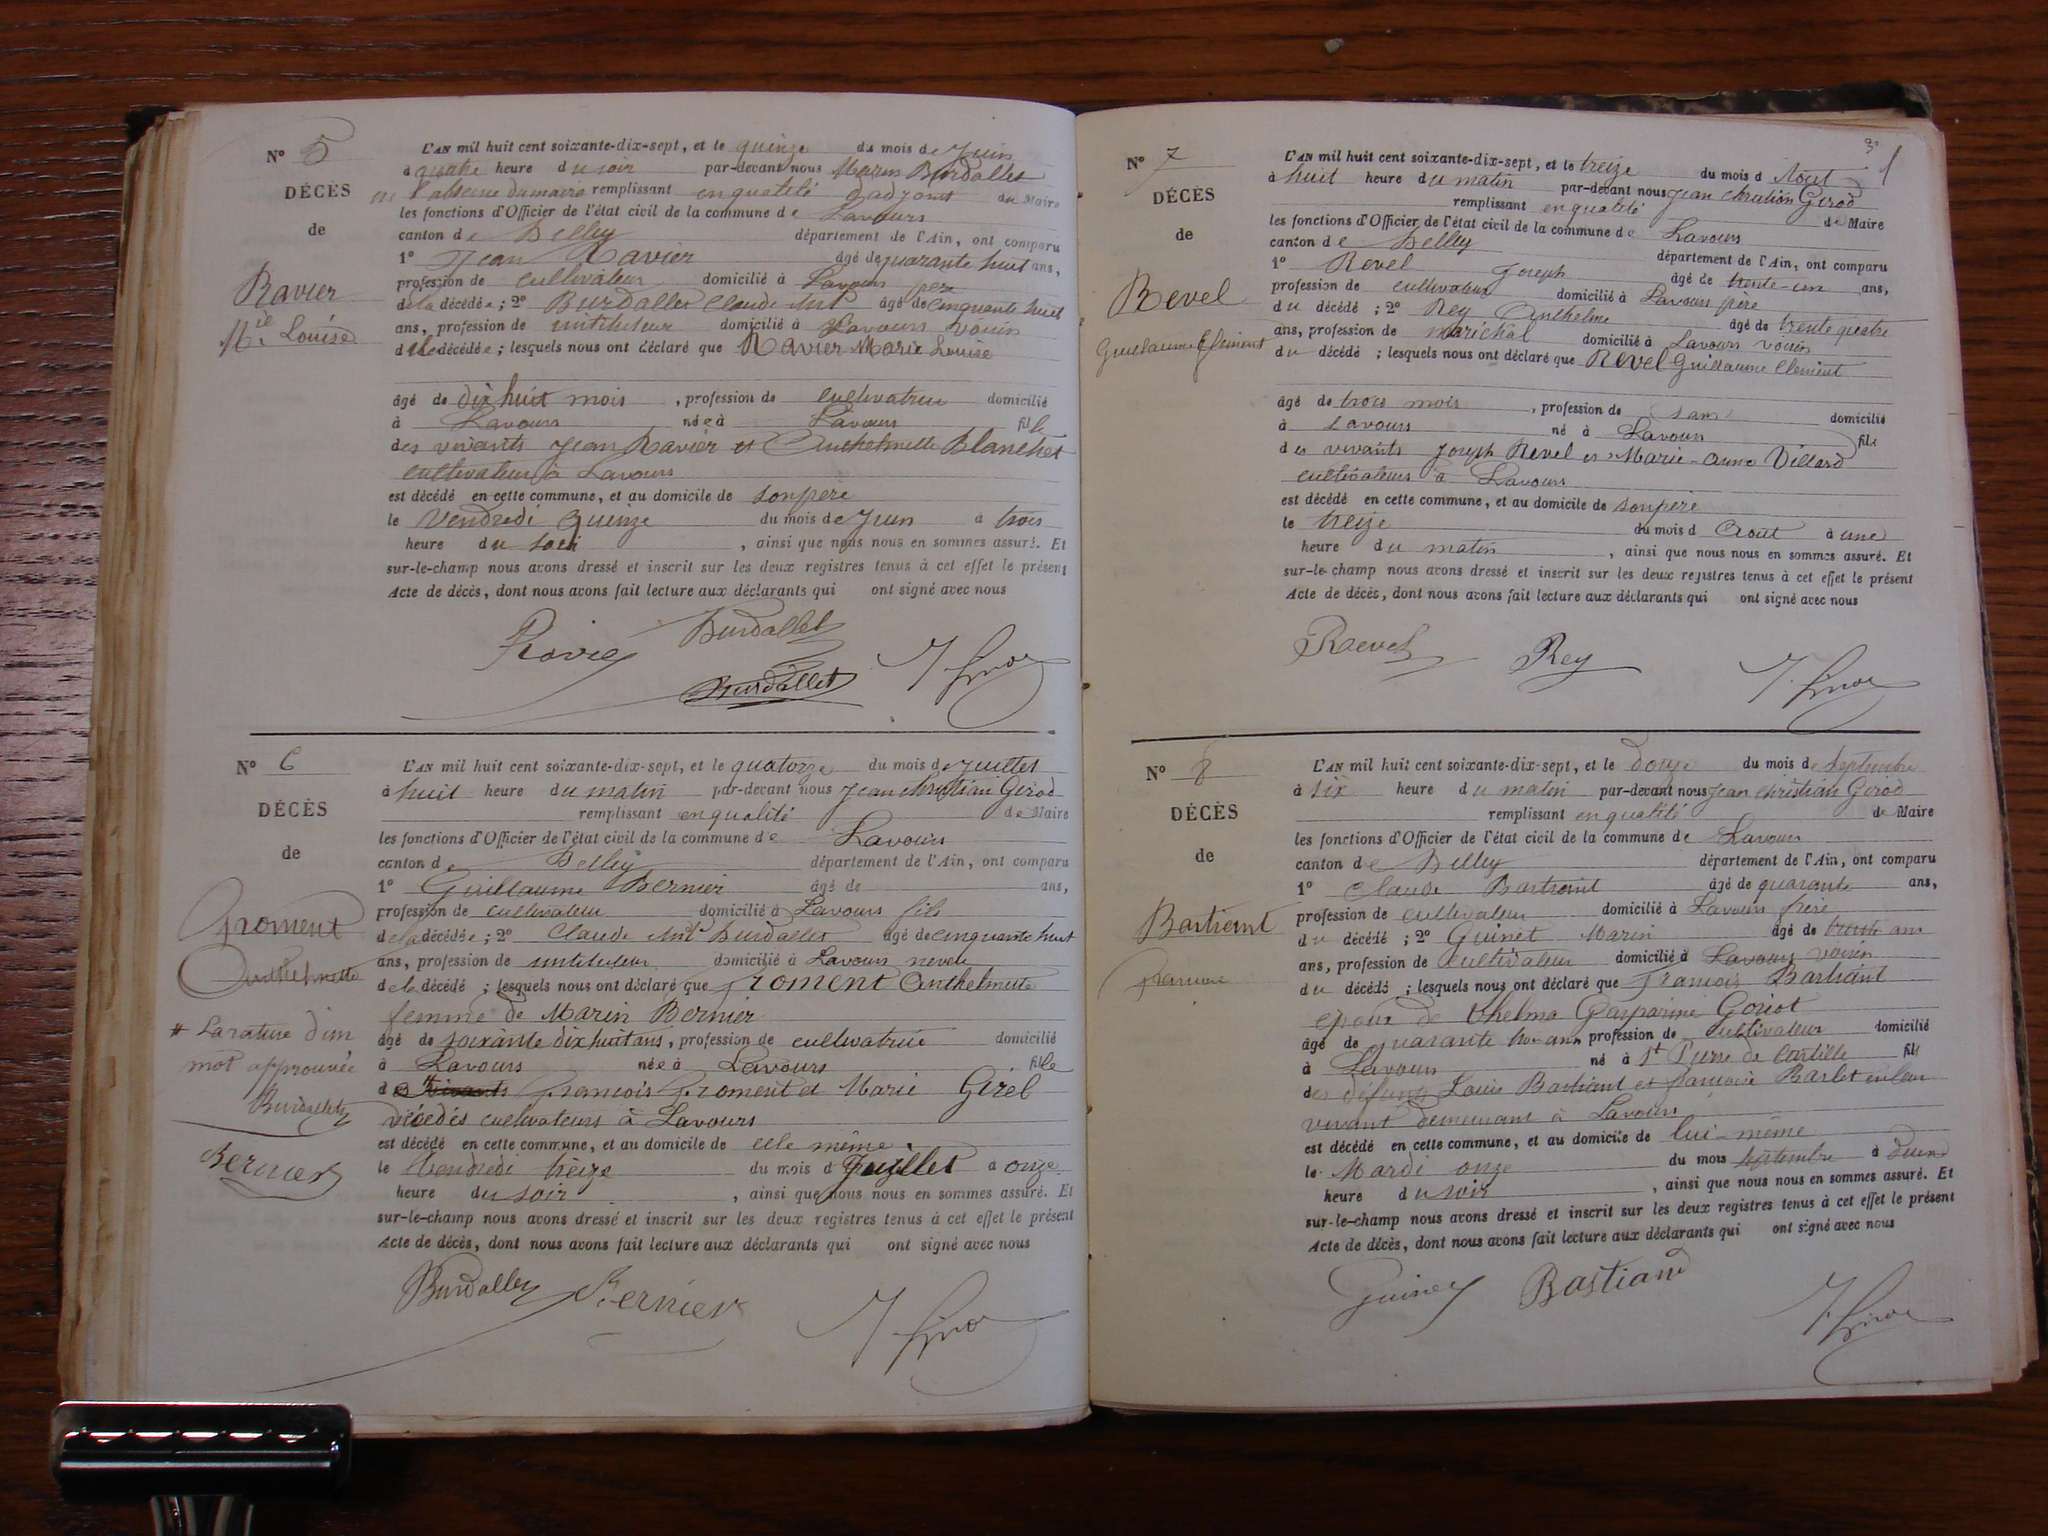 N° 5
DÉCÈS
de
Ravier
M.ie Louise
L'AN mil huit cent soixante-dix-sept, et le quinze du mois de Juin
à quatre heure du soir par-devant nous Marin Burdallet
en l'absence du maire remplissant en qualité d'adjoint du Maire
les fonctions d'Officier de l'état civil de la commune de Lavours
canton de Belley département de l'Ain, ont comparu
1° Jean Ravier âgé de quarante huit ans,
profession de cultivateur domicilié à Lavours père
de la décédée ; 2° Burdallet Claude Ant âgé de cinquante huit
ans, profession de instituteur domicilié à Lavours voisin
de la décédée ; lesquels nous ont déclaré que Ravier Marie Louise
âgé de dix huit mois , profession de cultivatrice domicilié
à Lavours née à Lavours fille
des vivants Jean Ravier et Anthelmette Blanchet
cultivateurs à Lavours
est décédé en cette commune, et au domicile de son père
le Vendredi quinze du mois de Juin à trois
heure du soir , ainsi que nous nous en sommes assuré. Et
sur-le-champ nous avons dressé et inscrit sur les deux registres tenus à cet effet le présent
Acte de décès, dont nous avons fait lecture aux déclarants qui ont signé avec nous
Ravier Burdallet
Burdallet J Girod
N° 6
DÉCÈS
de
froment
Anthelmette
# La rature d'un
mot approuvée
Burdallet
Bernier
L'AN mil huit cent soixante-dix-sept, et le quatorze du mois de Juillet
à huit heure du matin par-devant nous Jean Christian Girod
remplissant en qualité de Maire
les fonctions d'Officier de l'état civil de la commune de Lavours
canton de Belley département de l'Ain, ont comparu
1° Guillaume Bernier âgé de ans,
profession de cultivateur domicilié à Lavours fils
de la décédée ; 2° Claude Ant Burdallet âgé de cinquante huit
ans, profession de instituteur domicilié à Lavours neveu
de la décédé ; lesquels nous ont déclaré que froment Anthelmette
femme de Marin Bernier
âgé de soixante dix huit ans, profession de cultivatrice domicilié
à Lavours née à Lavours fille
des vivants françois froment et Marie Girel
décédés cultivateurs à Lavours
est décédé en cette commune, et au domicile de elle même
le Vendredi treize du mois d Juillet à onze
heure du soir , ainsi que nous nous en sommes assuré. Et
sur-le-champ nous avons dressé et inscrit sur les deux registres tenus à cet effet le présent
Acte de décès, dont nous avons fait lecture aux déclarants qui ont signé avec nous
Burdallet Bernier
J Girod
N° 7
DÉCÈS
de
Revel
Guillaume Clément
L'AN mil huit cent soixante-dix-sept, et le treize du mois d Aout
à huit heure du matin par-devant nous Jean Christian Girod
remplissant en qualité de Maire
les fonctions d'Officier de l'état civil de la commune de Lavours
canton de Belley département de l'Ain, ont comparu
1° Revel Joseph âgé de trente-un ans,
profession de cultivateur domicilié à Lavours père
du décédé ; 2° Rey Anthelme âgé de trente quatre
ans, profession de maréchal domicilié à Lavours voisin
du décédé ; lesquels nous ont déclaré que Revel Guillaume Clement
âgé de trois mois , profession de sans domicilié
à Lavours né à Lavours fils
des vivants Joseph Revel et Marie-anne Villard
cultivateurs à Lavours
est décédé en cette commune, et au domicile de son père
le treize du mois d Aout à une
heure du matin , ainsi que nous nous en sommes assuré. Et
sur-le-champ nous avons dressé et inscrit sur les deux registres tenus à cet effet le présent
Acte de décès, dont nous avons fait lecture aux déclarants qui ont signé avec nous
Revel Rey J. Girod
N° 8
DÉCÈS
de
Bastient
L'AN mil huit cent soixante-dix-sept, et le douze du mois de Septembre
à six heure du matin par-devant nous Jean Christian Girod
remplissant en qualité de Maire
les fonctions d'Officier de l'état civil de la commune de Lavours
canton de Belley département de l'Ain, ont comparu
1° Claude Bastient âgé de quarante ans,
profession de cultivateur domicilié à Lavours frère
du décédé ; 2° Guinet Marin âgé de trente ans
ans, profession de cultivateur domicilié à Lavours voisin
du décédé ; lesquels nous ont déclaré que françois Bastient
époux de thelma Gasparine Goriot
âgé de quarante trois ans profession de cultivateur domicilié
à Lavours né à St Pierre de fils
des défunts Louis Bastient et françoise Barlet en leur
vivant demeurant à Lavours
est décédé en cette commune, et au domicile de lui-même
le Mardi onze du mois septembre à
heure du soir , ainsi que nous nous en sommes assuré. Et
sur-le-champ nous avons dressé et inscrit sur les deux registres tenus à cet effet le présent
Acte de décès, dont nous avons fait lecture aux déclarants qui ont signé avec nous
Guinet Bastiand
J. Girod